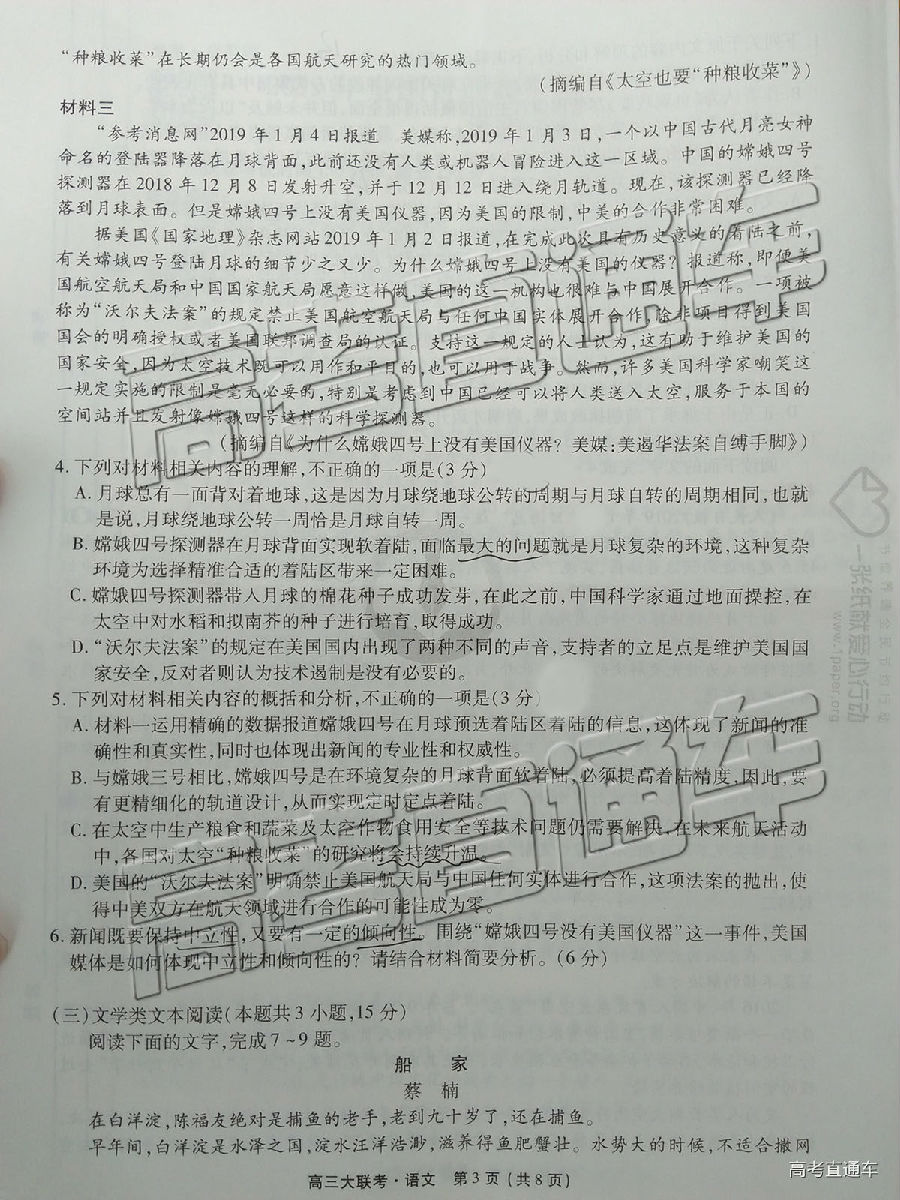 “种粮收菜”在长期仍会是各国航天研究的热门领域。
(摘编自《太空也要“种粮收菜”》)
材料三
“参考消息网”2019年1月4日报道 美媒称,2019年1月3日,一个以中国古代月亮女神
命名的登陆器降落在月球背面,此前还没有人类或机器人冒险进入这一区域。中国的嫦娥四号
探测器在2018年12月8日发射升空,并于12月12日进入绕月轨道。现在,该探测器已经降
落到月球表面。但是嫦娥四号上没有美国仪器,因为美国的限制,中美的合作非常困难。
据美国《国家地理》杂志网站2019年1月2日报道,在完成此次具有历史意义的着陆之前,
有关嫦娥四号登陆月球的细节少之又少。为什么嫦娥四号上没有美国的仪器?报道称,即便美
国航空航天局和中国国家航天局愿意这样做,美国的这一机构也很难与中国展开合作。一项被
称为“沃尔夫法案”的规定禁止美国航空航天局与任何中国实体展开合作,除非项目得到美国
国会的明确授权或者美国联邦调查局的认证。支持这一规定的人士认为,这有助于维护美国的
国家安全,因为太空技术既可以用作和平目的,也可以用于战争。然而,许多美国科学家嘲笑这
一规定实施的限制是毫无必要的,特别是考虑到中国已经可以将人类送入太空,服务于本国的
空间站并且发射像嫦娥四号这样的科学探测器。
(摘编自《为什么嫦娥四号上没有美国仪器?美媒:美遏华法案自缚手脚》)
4.下列对材料相关内容的理解,不正确的一项是(3分)
A.月球总有一面背对着地球,这是因为月球绕地球公转的周期与月球自转的周期相同,也就
是说,月球绕地球公转一周恰是月球自转一周。
B.嫦娥四号探测器在月球背面实现软着陆,面临最大的问题就是月球复杂的环境,这种复杂
环境为选择精准合适的着陆区带来一定困难。
C.嫦娥四号探测器带入月球的棉花种子成功发芽,在此之前,中国科学家通过地面操控,在
太空中对水稻和拟南芥的种子进行培育,取得成功。
D.“沃尔夫法案”的规定在美国国内出现了两种不同的声音,支持者的立足点是维护美国国
家安全,反对者则认为技术遏制是没有必要的。
5.下列对材料相关内容的概括和分析,不正确的一项是(3分)
A.材料一运用精确的数据报道嫦娥四号在月球预选着陆区着陆的信息,这体现了新闻的准
确性和真实性,同时也体现出新闻的专业性和权威性。
B.与嫦娥三号相比,嫦娥四号是在环境复杂的月球背面软着陆,必须提高着陆精度,因此,要
有更精细化的轨道设计,从而实现定时定点着陆。
C.在太空中生产粮食和蔬菜及太空作物食用安全等技术问题仍需要解决,在未来航天活动
中,各国对太空“种粮收菜”的研究将会持续升温。
D.美国的“沃尔夫法案”明确禁止美国航天局与中国任何实体进行合作,这项法案的抛出,使
得中美双方在航天领域进行合作的可能性成为零。
6.新闻既要保持中立性,又要有一定的倾向性。围绕“嫦娥四号没有美国仪器”这一事件,美国
媒体是如何体现中立性和倾向性的?请结合材料简要分析。(6分)
(三)文学类文本阅读(本题共3小题,15分)
阅读下面的文字,完成7~9题。
船 家
蔡 楠
在白洋淀,陈福友绝对是捕鱼的老手,老到九十岁了,还在捕鱼。
早年间,白洋淀是水泽之国,淀水汪洋浩渺,滋养得鱼肥蟹壮。水势大的时候,不适合撒网
高三大联考·语文 第3页(共8页)
高考直通车
高考直通车
一张纸献爱心行动
www.1paper.org
高考直通车